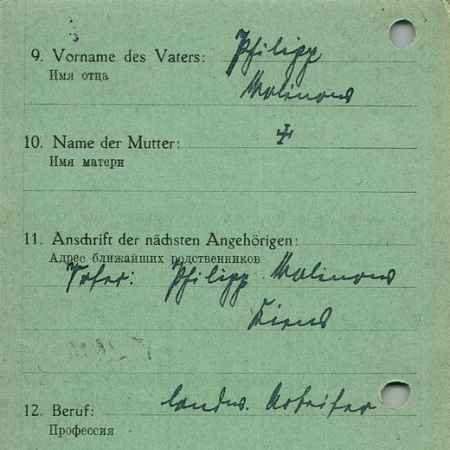 9. Vorname des Vaters: Philipp
Имя отца
Malinows
10. Name der Mutter: +
Имя матери
11. Anschrift der nächsten Angehörigen:
Адрес ближайших родственников
Vater: Philipp Malinows
12. Beruf: landw. Arbeiter
Профессия